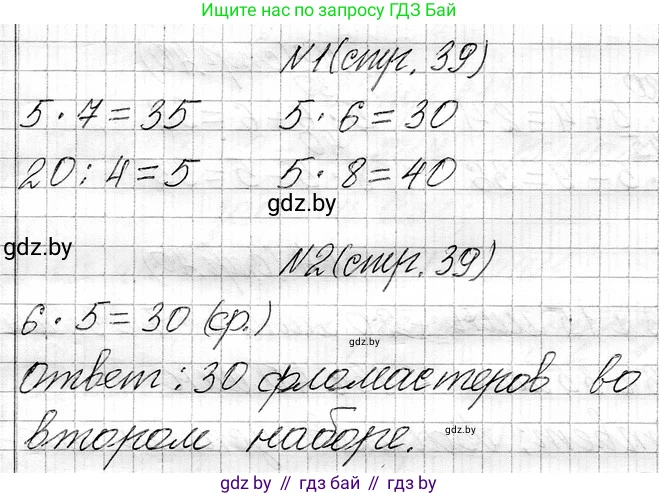 Ищите нас по запросу ГДЗ Бай
№1 (стр. 39)
5 · 7 = 35 5 · 6 = 30
20 : 4 = 5 5 · 8 = 40
gdz.by
gdz.by
№2 (стр. 39)
6 · 5 = 30 (ф.)
gdz.by
ответ: 30 фломастеров во
втором наборе.
gdz.by
gdz.by // гдз бай // gdz.by